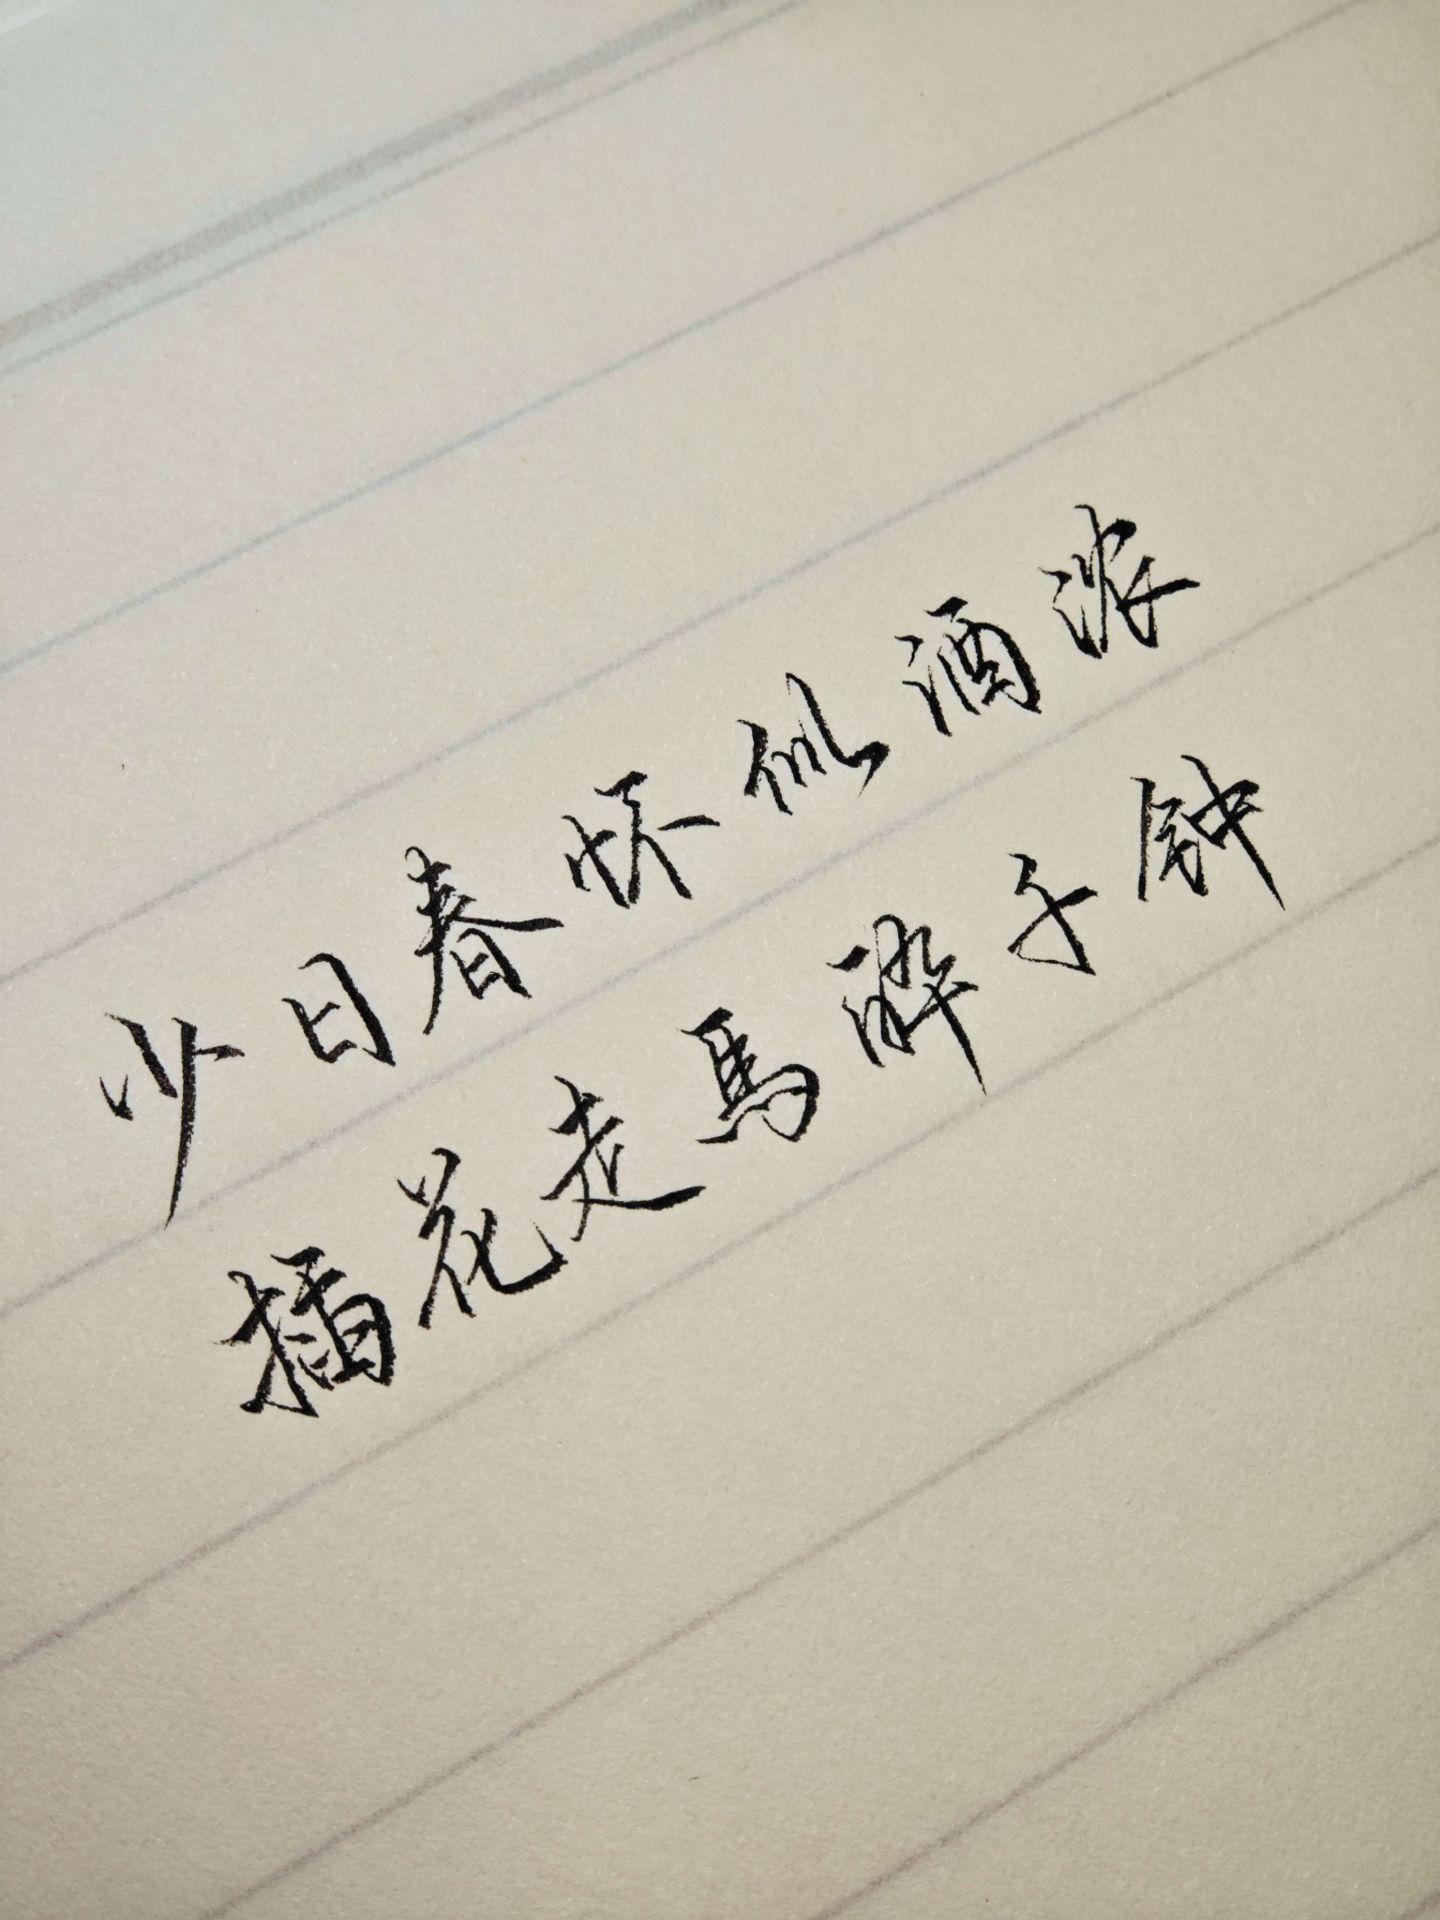 少日春怀似酒浓
插花走馬醉千钟